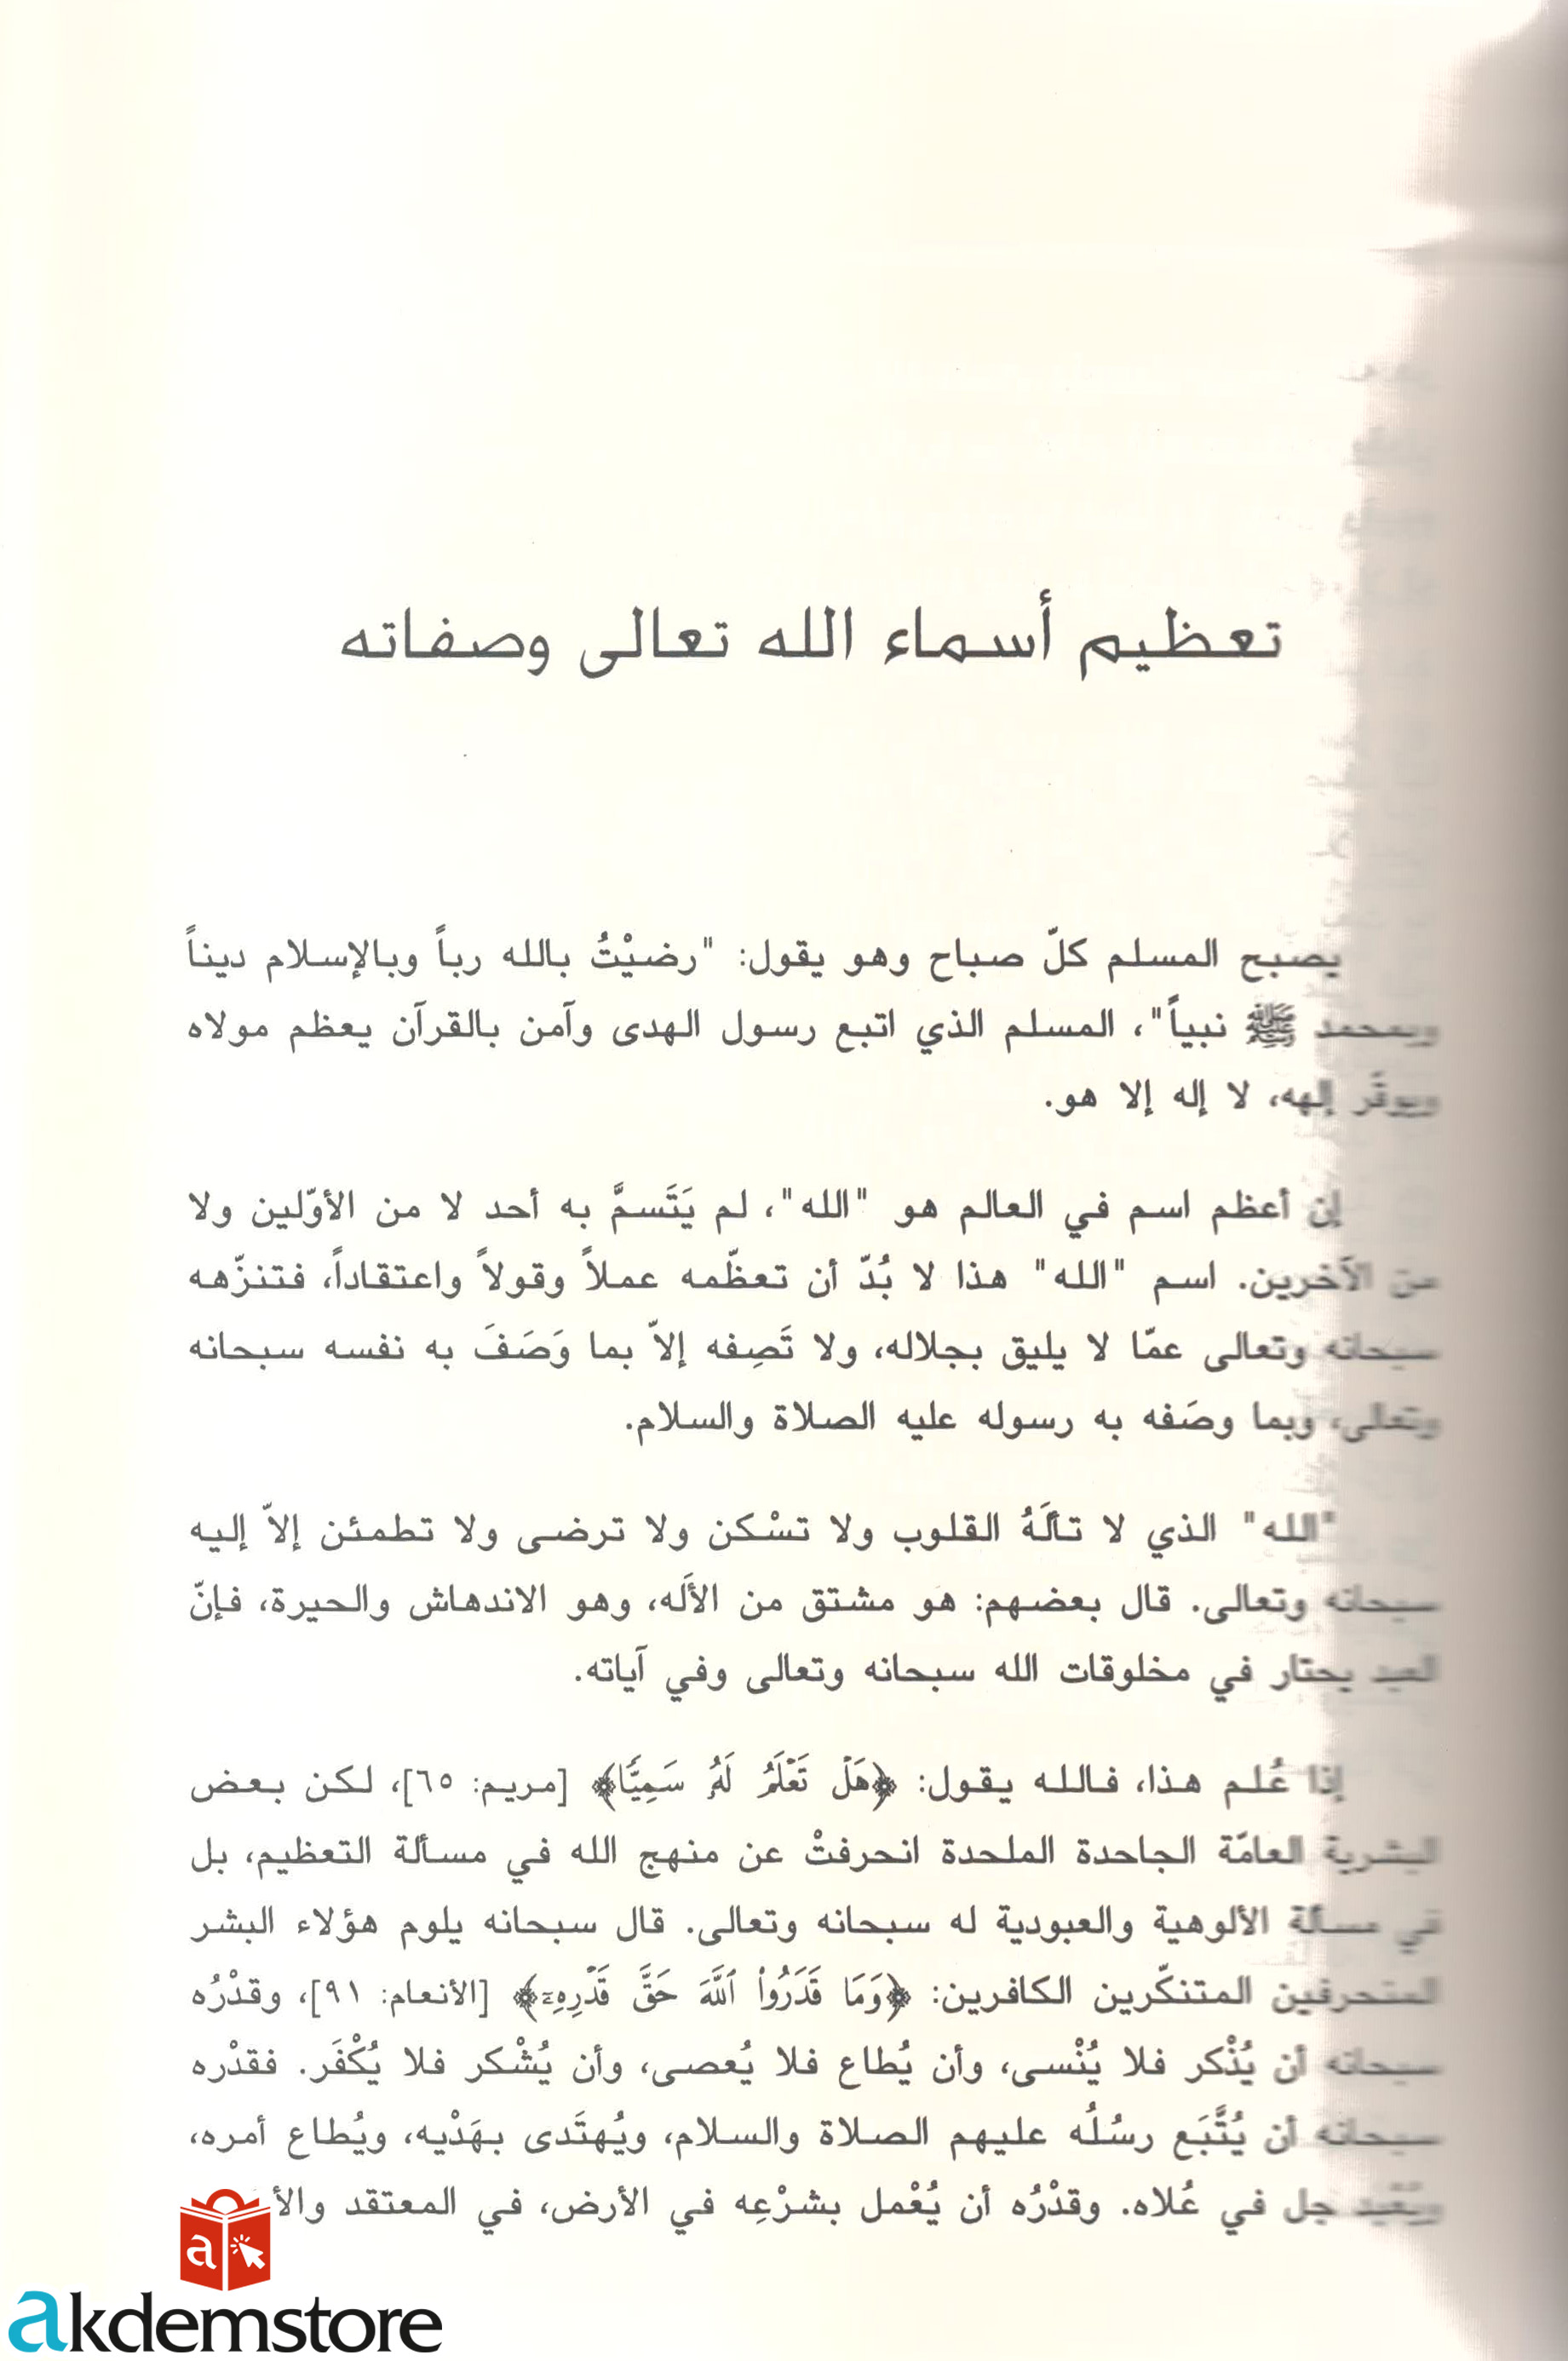 تعظيم أسماء الله تعالى وصفاته
يصبح المسلم كلّ صباح وهو يقول: "رضيْتُ بالله رباً وبالإسلام ديناً
وبمحمد ﷺ نبياً"، المسلم الذي اتبع رسول الهدى وآمن بالقرآن يعظم مولاه
ويوقّر إلهه، لا إله إلا هو.
إن أعظم اسم في العالم هو "الله"، لم يَتَسمَّ به أحد لا من الأوّلين ولا
من الآخرين. اسم "الله" هذا لا بُدّ أن تعظّمه عملاً وقولاً واعتقاداً، فتنزّهه
سبحانه وتعالى عمّا لا يليق بجلاله، ولا تَصِفه إلاّ بما وَصَفَ به نفسه سبحانه
وتعالى، وبما وصَفه به رسوله عليه الصلاة والسلام.
"الله" الذي لا تألَهُ القلوب ولا تسْكن ولا ترضى ولا تطمئن إلاّ إليه
سبحانه وتعالى. قال بعضهم: هو مشتق من الألَه، وهو الاندهاش والحيرة، فإنّ
العبد يحتار في مخلوقات الله سبحانه وتعالى وفي آياته.
إذا عُلم هذا، فالله يقول: ﴿هَلْ تَعْلَمُ لَهُۥ سَمِيًّا﴾ [مريم: ٦٥]، لكن بعض
البشرية العامّة الجاحدة الملحدة انحرفتْ عن منهج الله في مسألة التعظيم، بل
في مسألة الألوهية والعبودية له سبحانه وتعالى. قال سبحانه يلوم هؤلاء البشر
المنحرفين المتنكّرين الكافرين: ﴿وَمَا قَدَرُوا۟ ٱللَّهَ حَقَّ قَدْرِهِۦٓ﴾ [الأنعام: ٩١]، وقدْرُه
سبحانه أن يُذْكر فلا يُنْسى، وأن يُطاع فلا يُعصى، وأن يُشْكر فلا يُكْفَر. فقدْره
سبحانه أن يُتَّبَع رسُلُه عليهم الصلاة والسلام، ويُهتَدى بهَدْيه، ويُطاع أمره،
جل في عُلاه. وقدْرُه أن يُعْمل بشرْعِه في الأرض، في المعتقد
a
akdemstore